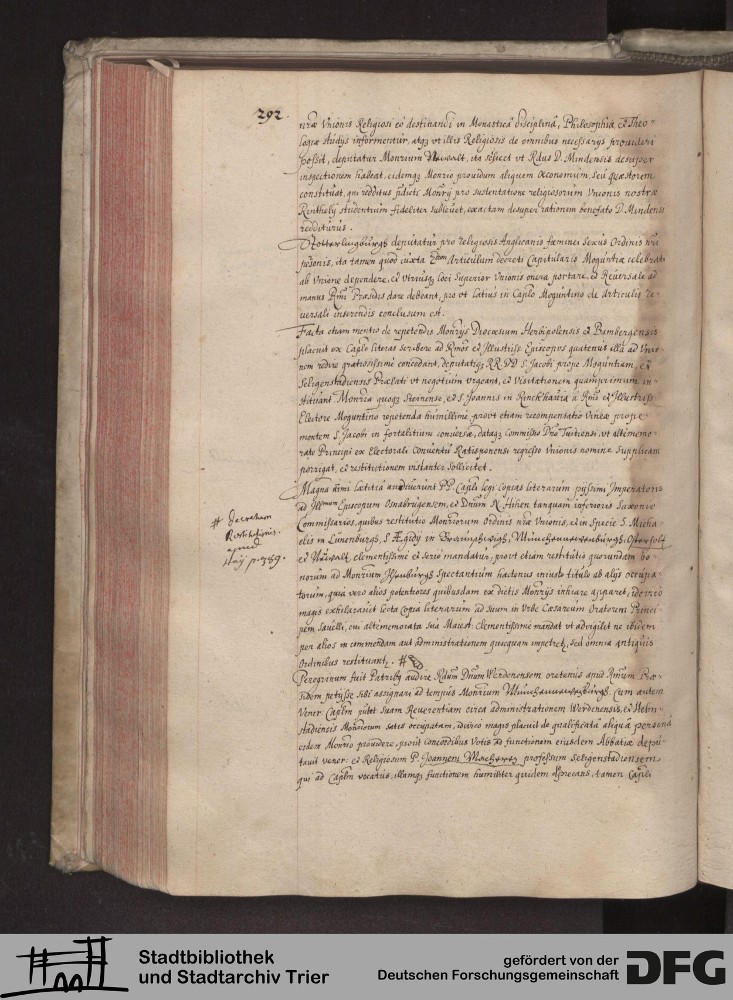 292.
nræ Vnionis Religiosi eò destinandi in Monasticâ disciplinâ, Philosophia, et Theo-
logiæ studijs informentur, atq; vt illis Religiosis de omnibus necessarijs prouideri
possit, deputatur Monrium Nuwalt, ita scilicet vt Rdus D. Mindensis desuper
inspectionem habeat, eidemq; Monrio prouidum aliquem œconomum, seu quæstorem
constituat, qui redditus fundi Monrij pro sustentatione religiosorum Vnionis nostræ
Rinthelij studentium fideliter subleuet, exactam desuper rationem benefato D. Mindensi
redditurus.
Stotterlingburgs deputatur pro religiosis Anglicanis fæminei sexus Ordinis nri
personis, ita tamen quod iuxta Articulum decreti Capitularis Moguntiæ celebrati
ab Vnione dependere, et vtriusq; loci Superior Vnionis onera portare, et Reuersale ad
manus Rmi Præsidis dare debeant, pro vt latius in Caplo Moguntino de Articulis re-
uersali inserendis conclusum est.
Facta etiam mentio de repetendis Monrijs Diœcesium Herbipolensis et Bambergensis
placuit ex Caplo literas scribere ad Rmos et Illustriss. Episcopos quatenus illa ad Vnio-
nem redire gratiosissimè concedant, deputatisq; RR. PP. S. Jacobi prope Moguntiam, et
Seligenstadiensis Prælati vt negotium vrgeant, et Visitationem quamprimum in-
stituant. Monria quoq; Steinense, et S. Joannis in Rinckhauia a Rmo et Illustriss.
Electore Moguntino repetenda humillimè, prout etiam recompensatio Vineæ prope
montem S. Jacobi in fortalitium conuersæ, dataq; Commissio Dno Tuitiensi, vt altememo-
rato Principi ex Electorali Conuentu Ratisponensi regresso Vnionis nomine supplicam
porrigat, et restitutionem instanter sollicitet.
Magna animi lætitia audiuerunt PP. Capli legi copias literarum pijssimi Imperatoris
ad Illmum Episcopum Osnabrugensem, et Dnum R. Hihen tanquam inferioris Saxoniæ
Commissarios, quibus restitutio Monriorum Ordinis nræ Vnionis, et in specie S. Micha-
elis in Lunenburgs, S. Ægidij in Braunschweigs, Münchennienburgs, Osterholt
et Nuwalt, clementissimè et seriò mandatur, prout etiam restitutio quorundam bo-
norum ad Monrium Ilsenburgs spectantium hactenus iniusto titulo ab alijs occupa-
torum, quia vero alios potentiores quibusdam ex dictis Monrijs inhiare apparet, idcirco
magis exhilarauit lecta copia literarum ad suum in Vrbe Cæsareum Oratorem Princi-
pem Sauelli, cui altememorata sua Maiest. clementissimè mandat vt aduigilet ne ibidem
per alios in commendam aut administrationem quicquam impetret, sed omnia antiquis
Ordinibus restituant. #
Peregrinum fuit Patribus audire Rdum Dnum Werdenensem oretenus apud Rmum Præ-
sidem petijsse sibi assignari ad tempus Monrium Münchennienburgs. Cum autem
Vener. Caplm putet suam Reuerentiam circa administrationem Werdenensis, et Helm-
stadiensis Monriorum satis occupatam, idcirco magis placuit de qualificata aliqua persona
eidem Monrio prouidere, prout concordibus Votis ad functionem eiusdem Abbatiæ depu-
tauit vener. et Religiosum P. Joannem professum Seligenstadiensem,
qui ad Caplm vocatus, illamq; functionem humiliter quidem deprecans, tamen Capli
# decretum
Restitutionis
apud
Haij p. 389.
Stadtbibliothek
und Stadtarchiv Trier
gefördert von der
Deutschen Forschungsgemeinschaft
DFG